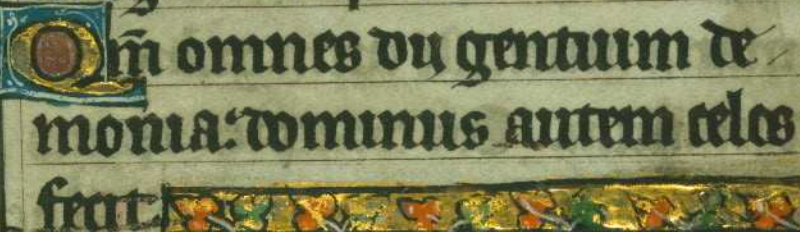 Qm̄ omnes dij gentium de
monia: dominus autem celos
fecit.